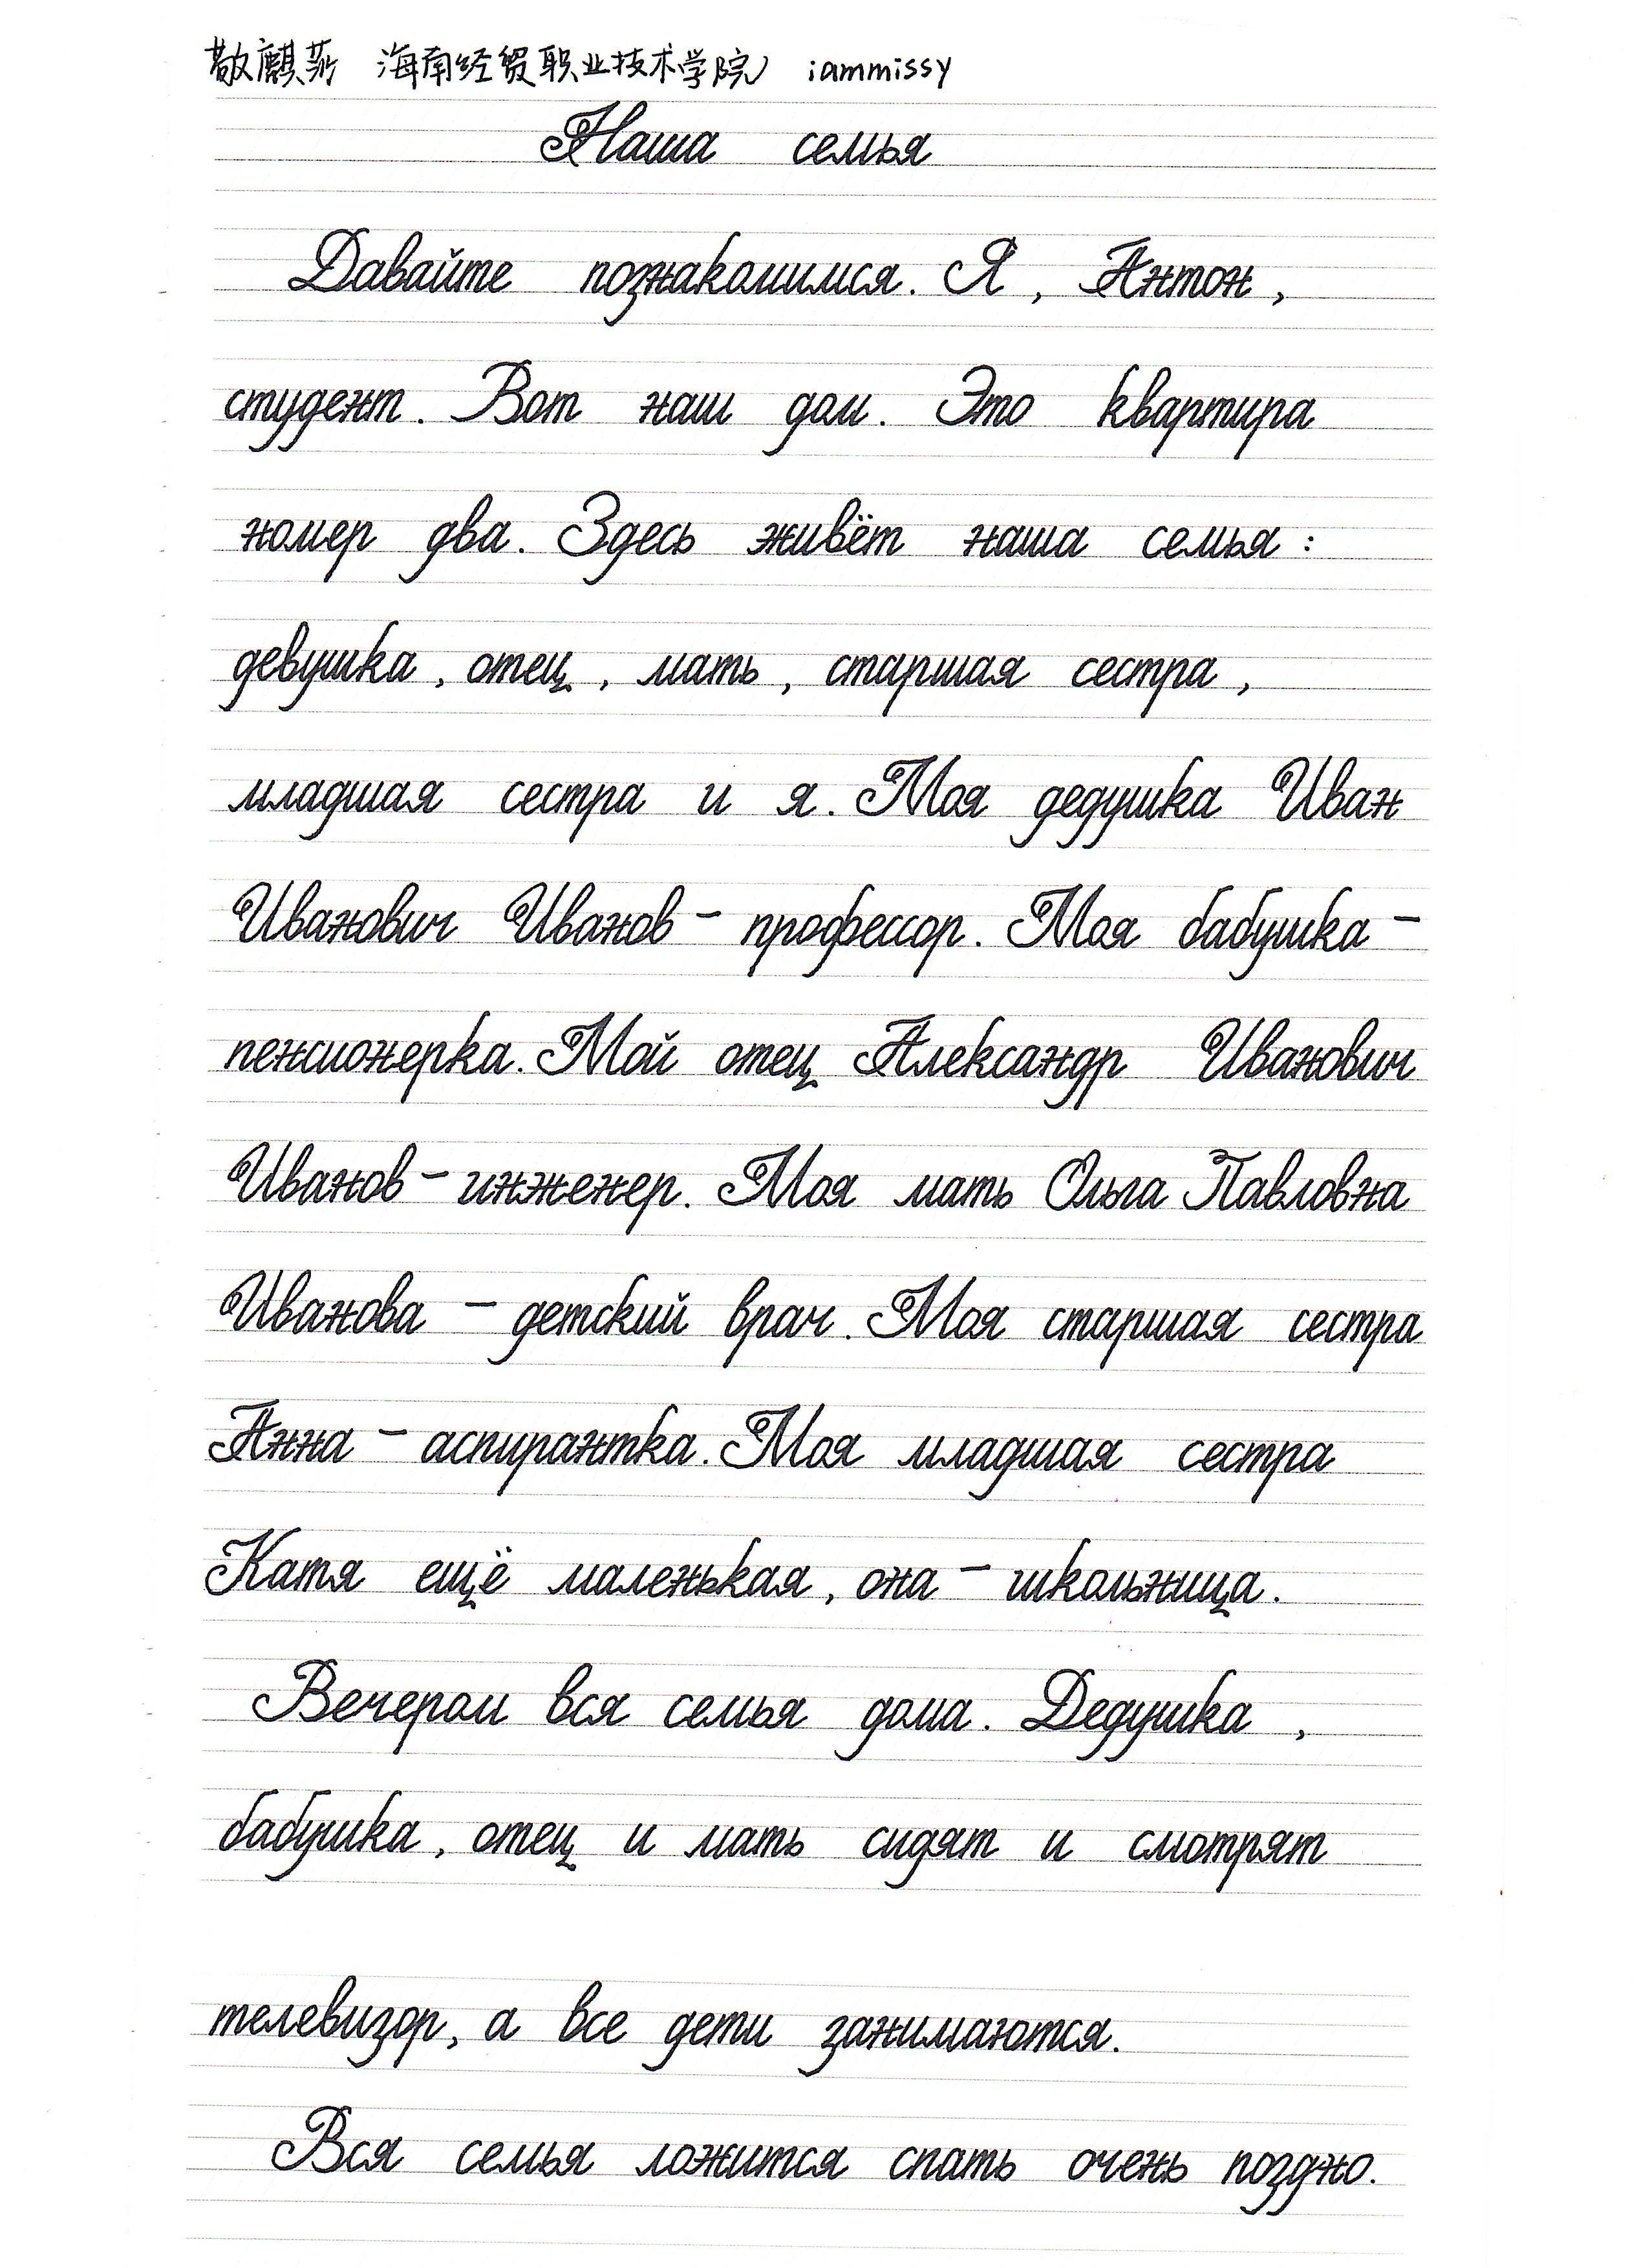 敬麒菻 海南经贸职业技术学院 iammissy
Наша семья
Давайте познакомимся. Я, Антон,
студент. Вот наш дом. Это квартира
номер два. Здесь живёт наша семья:
девушка, отец, мать, старшая сестра,
младшая сестра и я. Моя дедушка Иван
Иванович Иванов – профессор. Моя бабушка –
пенсионерка. Мой отец Александр Иванович
Иванов – инженер. Моя мать Ольга Павловна
Иванова – детский врач. Моя старшая сестра
Анна – аспирантка. Моя младшая сестра
Катя ещё маленькая, она – школьница.
Вечером вся семья дома. Дедушка,
бабушка, отец и мать сидят и смотрят
телевизор, а все дети занимаются.
Вся семья ложится спать очень поздно.